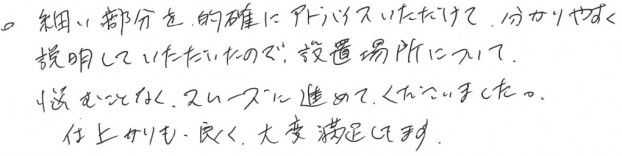 。細い部分を、的確にアドバイスいただけて、分かりやすく
説明していただいたので、設置場所について、
悩むことなく、スムーズに進めて、くださいました。
仕上がりも、良く、大変満足してます。